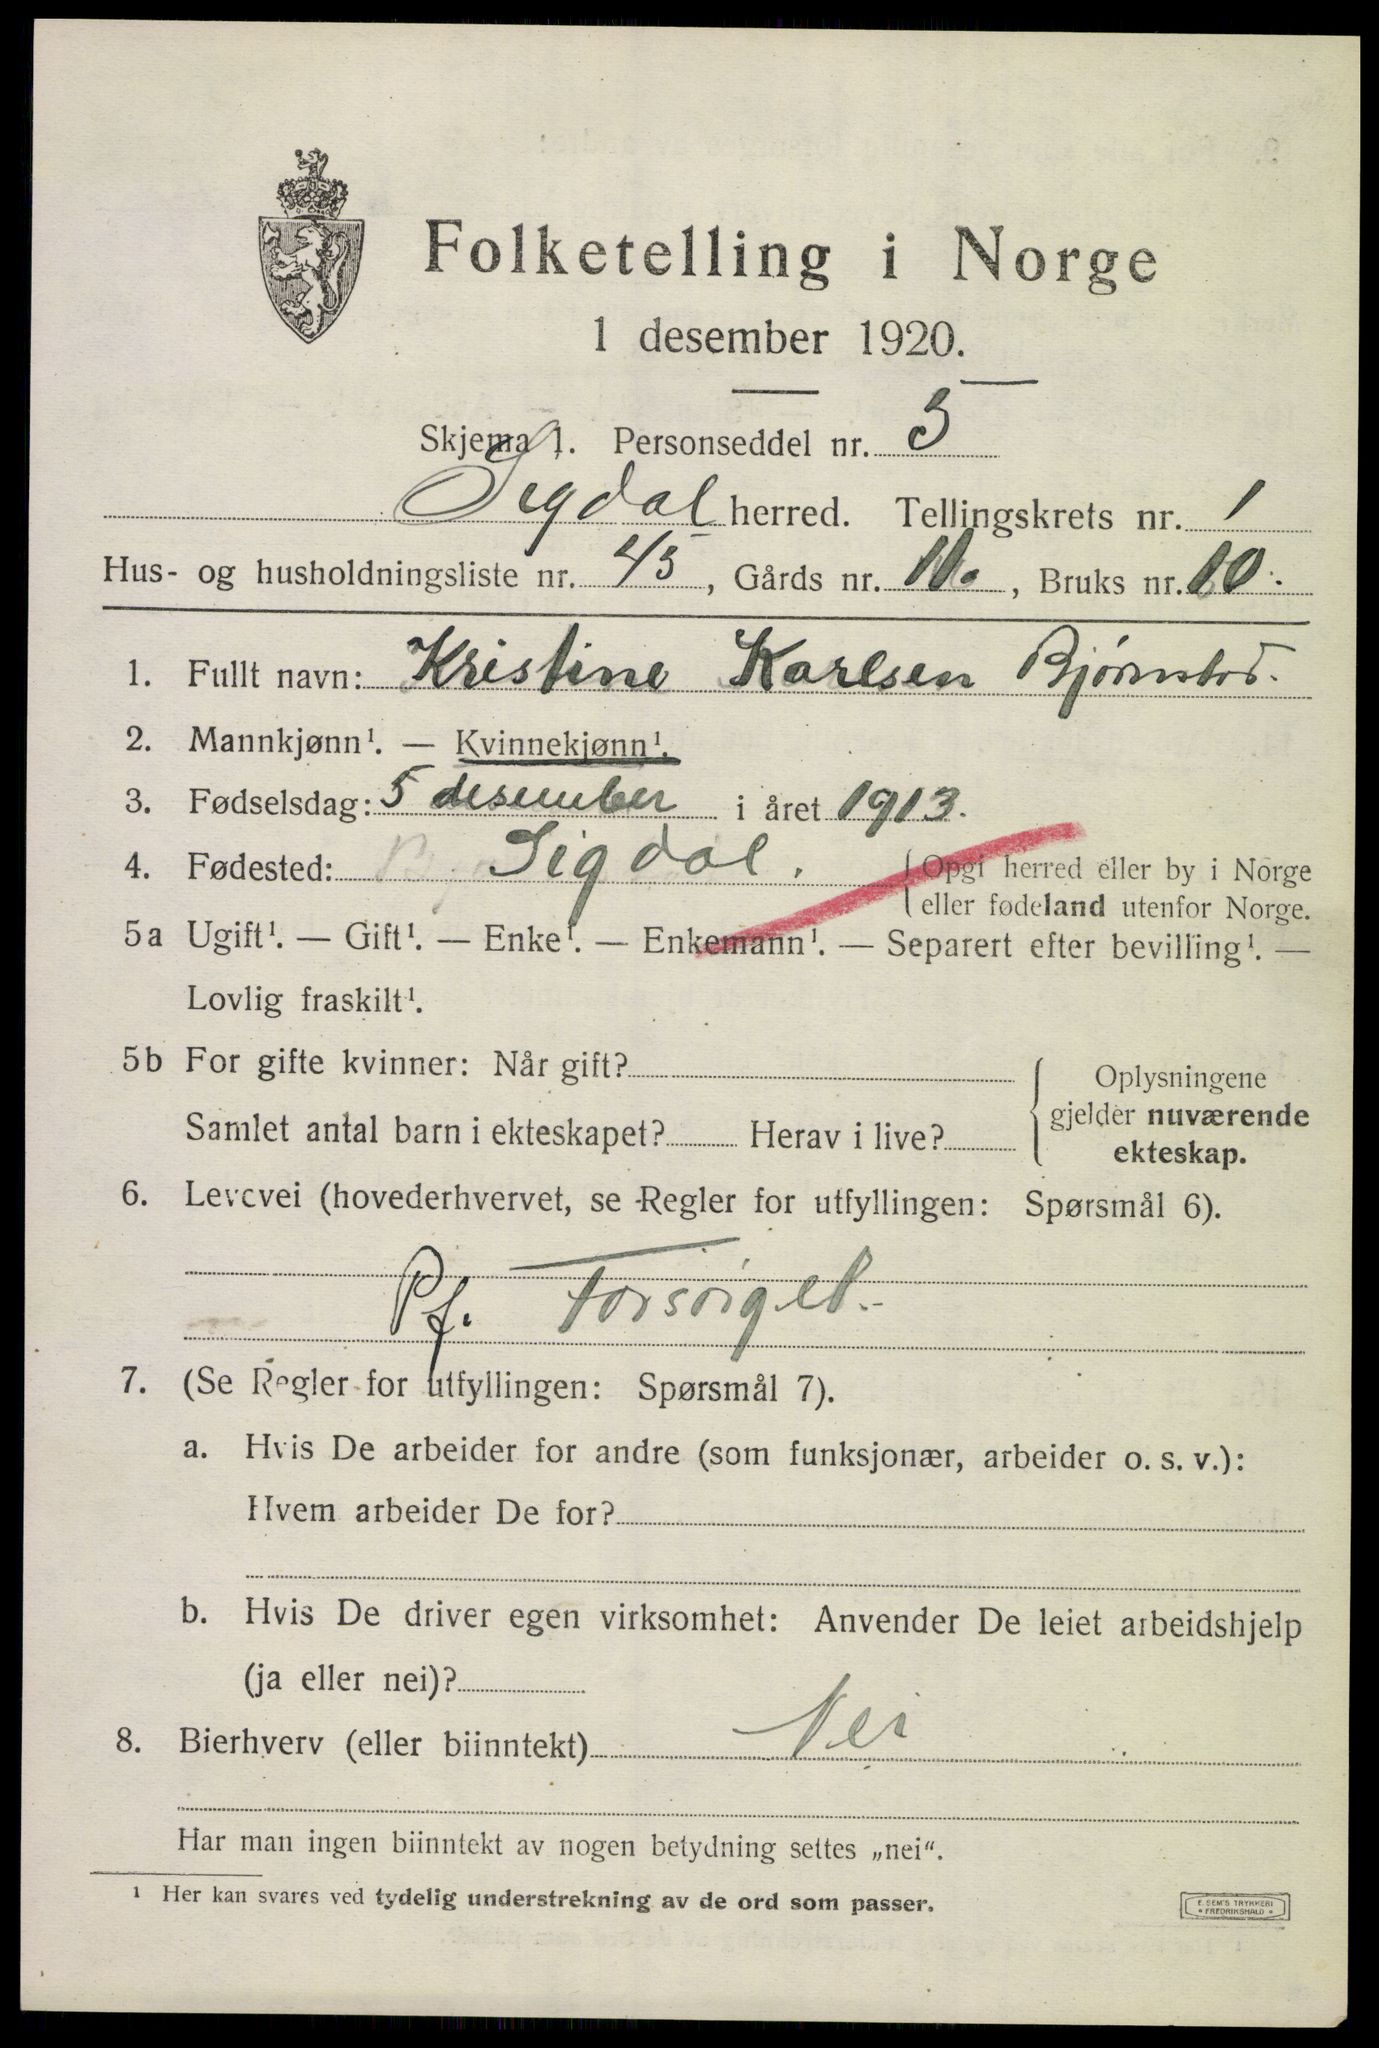 Folketelling i Norge
1 desember 1920.
Skjema 1. Personseddel nr. 5
Sigdal herred. Tellingskrets nr. 1
Hus- og husholdningsliste nr. 45, Gårds nr. 110, Bruks nr. 10.
1. Fullt navn: Kristine Karlsen
2. Mannkjønn¹. — Kvinnekjønn¹.
3. Fødselsdag: 5 desember i året 1913.
4. Fødested: Sigdal. Opgi herred eller by i Norge
eller fødeland utenfor Norge.
5a Ugift¹. — Gift¹. — Enke¹. — Enkemann¹. — Separert efter bevilling¹. —
Lovlig fraskilt¹.
5b For gifte kvinner: Når gift?
Samlet antal barn i ekteskapet? Herav i live?
Oplysningene
gjelder nuværende
ekteskap.
6. Levevei (hovederhvervet, se Regler for utfyllingen: Spørsmål 6).
Pf. Forsørget.
7. (Se Regler for utfyllingen: Spørsmål 7).
a. Hvis De arbeider for andre (som funksjonær, arbeider o. s. v.):
Hvem arbeider De for?
b. Hvis De driver egen virksomhet: Anvender De leiet arbeidshjelp
(ja eller nei)?
8. Bierhverv (eller biinntekt) Nei
Har man ingen biinntekt av nogen betydning settes „nei“.
¹ Her kan svares ved tydelig understrekning av de ord som passer.
E. SEM'S TRYKKERI
• FREDRIKSHALD •